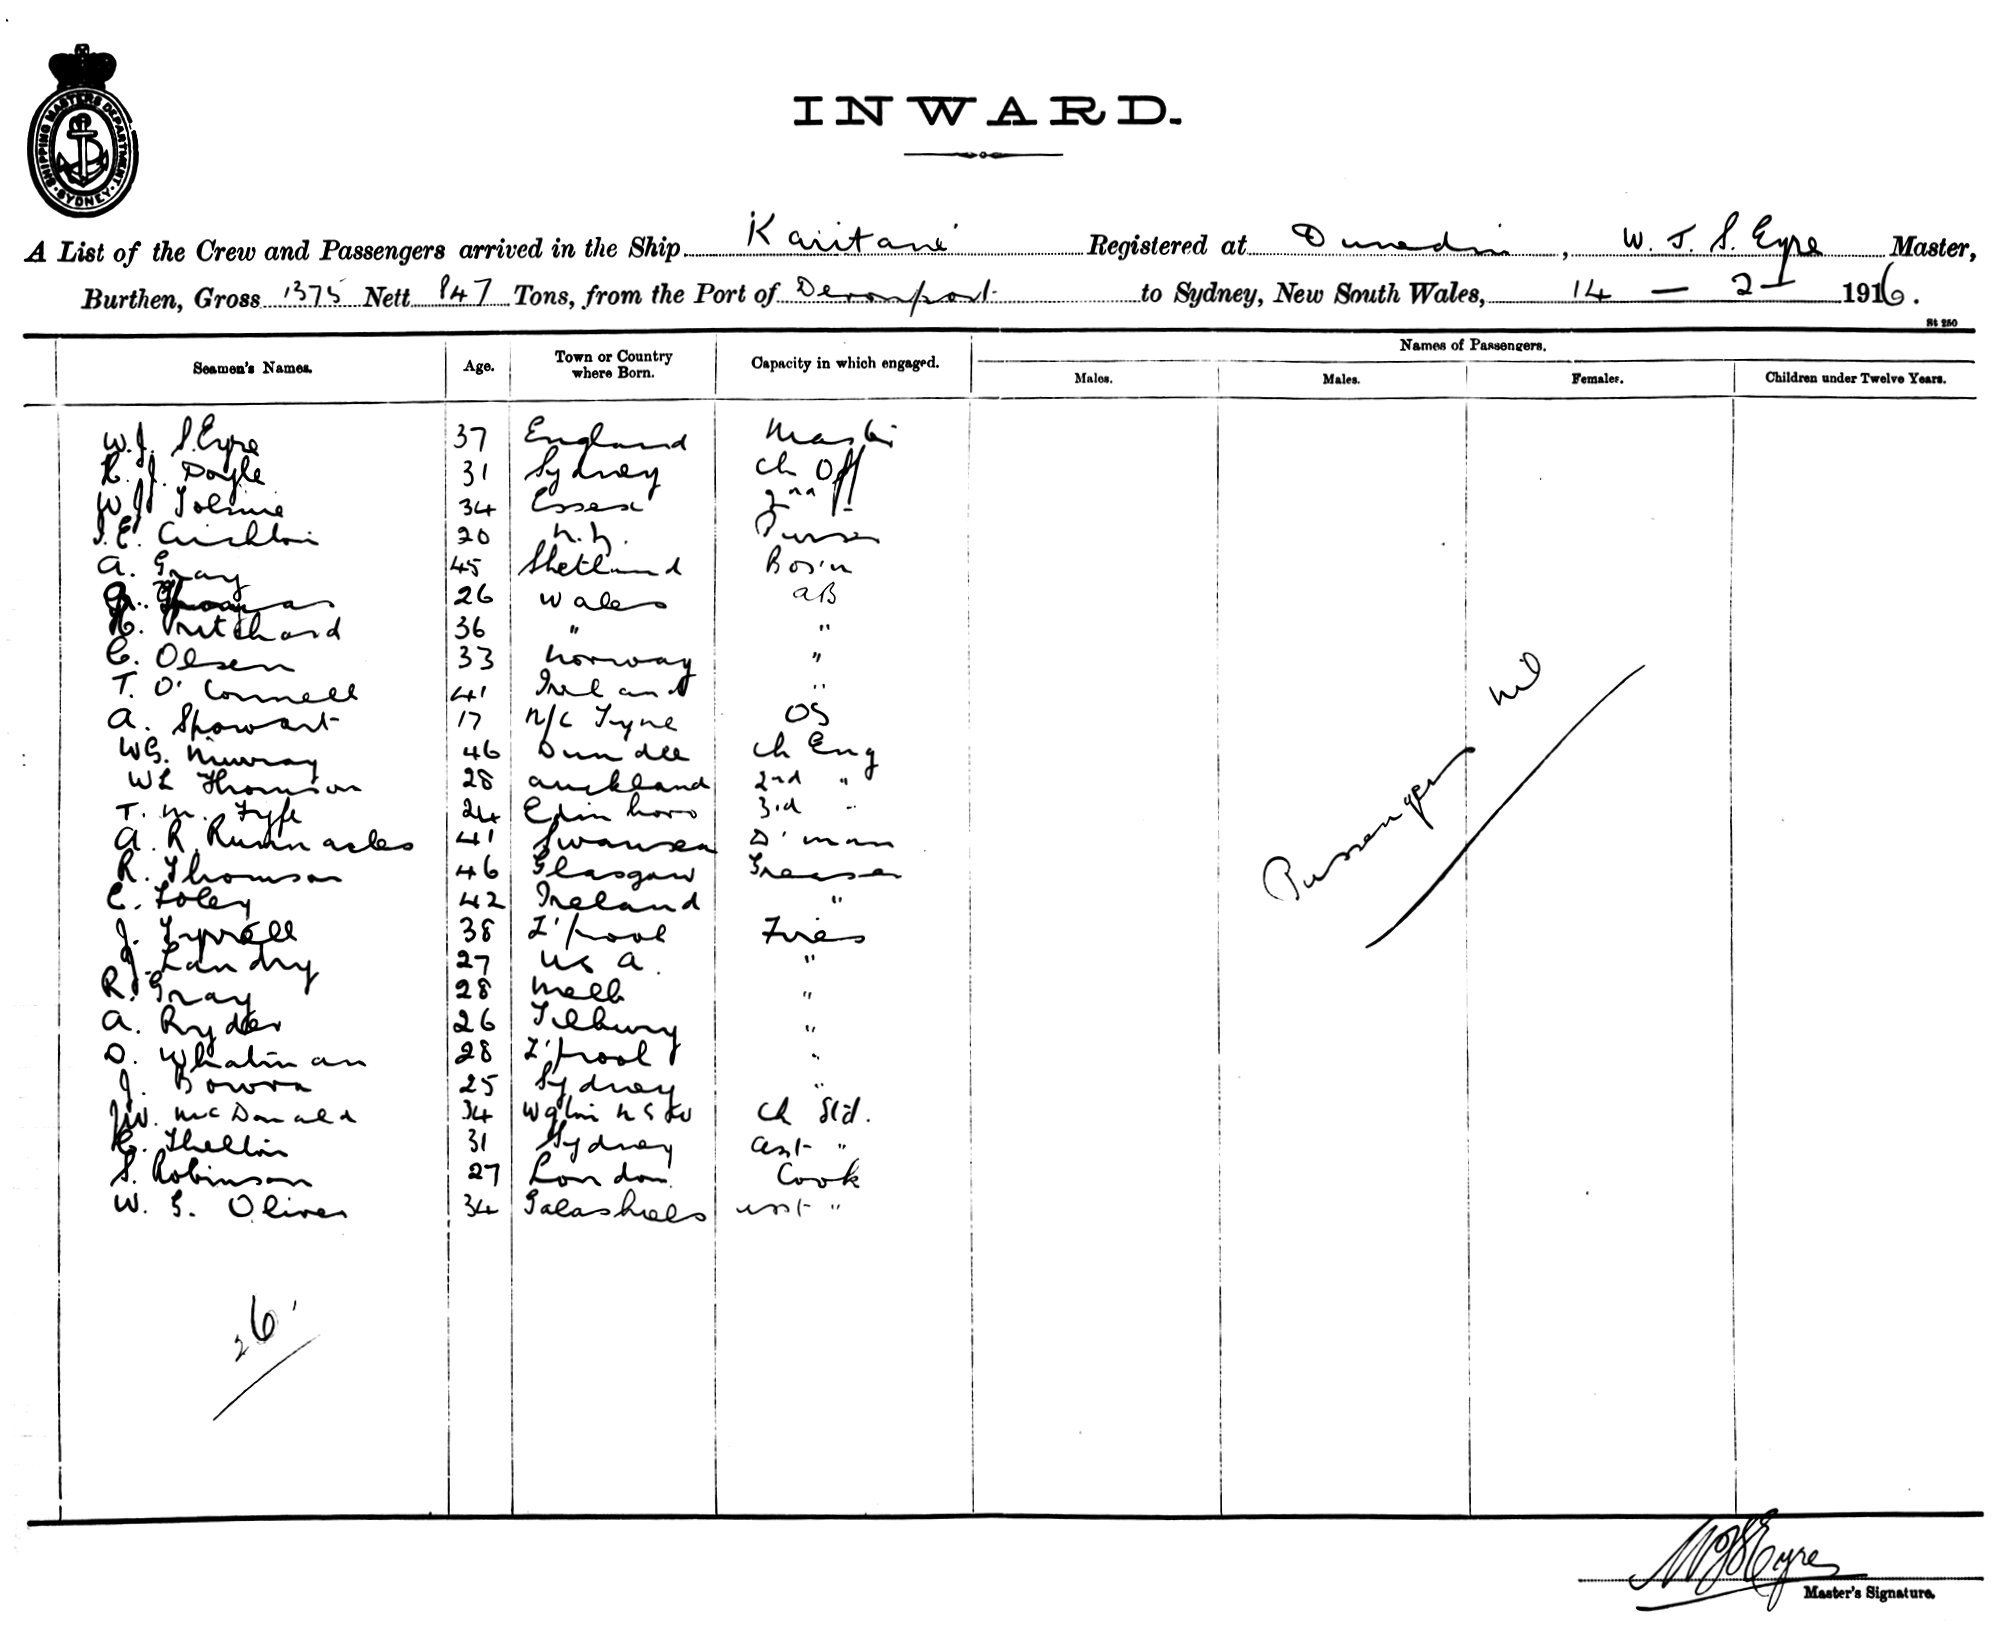 SHIPPING MASTERS DEPARTMENT. SYDNEY
INWARD.
A List of the Crew and Passengers arrived in the Ship Karitane Registered at Dunedin, W. J. S. Eyre Master,
Burthen, Gross 1375 Nett 847 Tons, from the Port of Devonport to Sydney, New South Wales, 14 — 2 1916.
St 250
Seamen's Names. Age. Town or Country where Born. Capacity in which engaged. Names of Passengers.
Males. Males. Females. Children under Twelve Years.
W.J. S. Eyre 37 England Master
R. J. Doyle 31 Sydney Ch Off
W J Tolmie 34 Essex 2nd "
E. Crichton 20 N.Z. Purser
A. Gray 45 Shetland Bos'n
Thomas 26 Wales AB
H. Pritchard 36 " "
C. Olsen 33 Norway "
T. O'Connell 41 Ireland "
A. Showart 17 N/C Tyne OS
WG. Murray 46 Dundee Ch Eng
WL Thomson 28 Auckland 2nd "
T. M. Fyfe 24 Edinboro 3rd "
A. R. Rumnacles 41 Swansea D'man
R. Thomson 46 Glasgow Greaser
C. Foley 42 Ireland "
J. Tyrrell 38 L'pool Fires
J. Landry 27 US A. "
R. Gray 28 Melb "
A. Ryder 26 Tilbury "
D. Whatman 28 L'pool "
J. Bowra 25 Sydney "
JW. McDonald 34 Wgtn NSW Ch Std.
Thellin 31 Sydney Asst "
S. Robinson 27 London Cook
W. G. Oliver 34 Galashiels Asst "
Passengers nil
26
WJSEyre
Master's Signature.